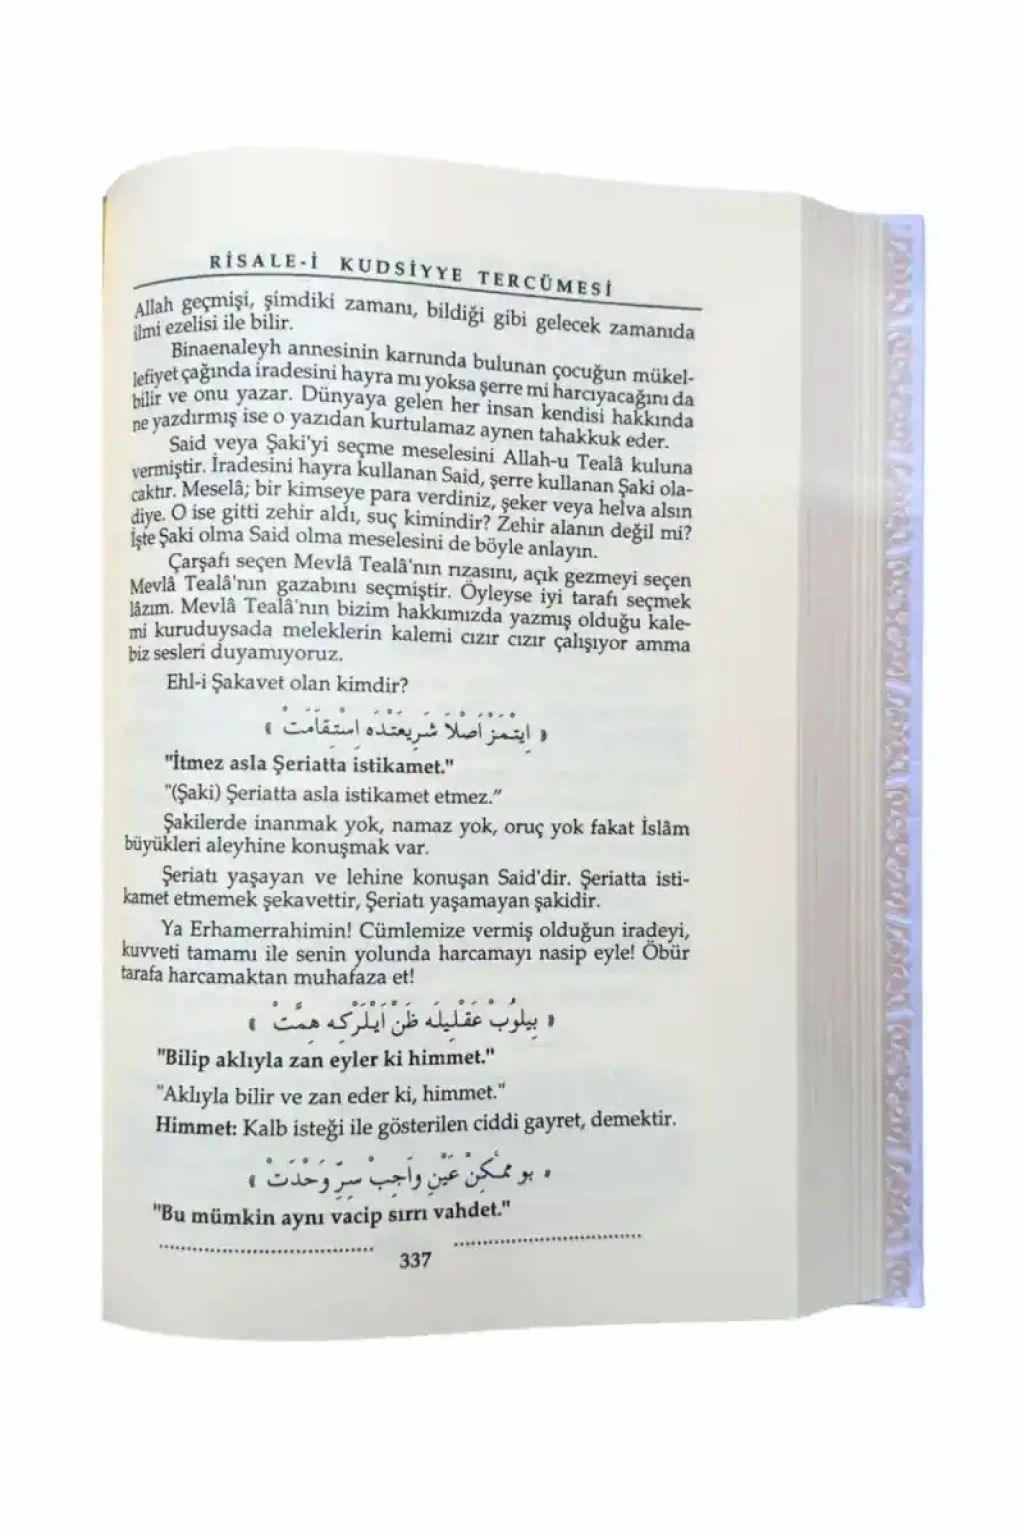 RİSALE-İ KUDSİYYE TERCÜMESİ
Allah geçmişi, şimdiki zamanı, bildiği gibi gelecek zamanıda
ilmi ezelisi ile bilir.
Binaenaleyh annesinin karnında bulunan çocuğun mükel-
lefiyet çağında iradesini hayra mı yoksa şerre mi harcıyacağını da
bilir ve onu yazar. Dünyaya gelen her insan kendisi hakkında
ne yazdırmış ise o yazıdan kurtulamaz aynen tahakkuk eder.
Said veya Şaki'yi seçme meselesini Allah-u Tealâ kuluna
vermiştir. İradesini hayra kullanan Said, şerre kullanan Şaki ola-
caktır. Meselâ; bir kimseye para verdiniz, şeker veya helva alsın
diye. O ise gitti zehir aldı, suç kimindir? Zehir alanın değil mi?
İşte Şaki olma Said olma meselesini de böyle anlayın.
Çarşafı seçen Mevlâ Tealâ'nın rızasını, açık gezmeyi seçen
Mevlâ Tealâ'nın gazabını seçmiştir. Öyleyse iyi tarafı seçmek
lâzım. Mevlâ Tealâ'nın bizim hakkımızda yazmış olduğu kale-
mi kuruduysada meleklerin kalemi cızır cızır çalışıyor amma
biz sesleri duyamıyoruz.
Ehl-i Şakavet olan kimdir?
« اِيتْمَزْ اَصْلاَ شَرِيعَتْدَه اِسْتِقَامَتْ »
"İtmez asla Şeriatta istikamet."
"(Şaki) Şeriatta asla istikamet etmez."
Şakilerde inanmak yok, namaz yok, oruç yok fakat İslâm
büyükleri aleyhine konuşmak var.
Şeriatı yaşayan ve lehine konuşan Said'dir. Şeriatta isti-
kamet etmemek şekavettir, Şeriatı yaşamayan şakidir.
Ya Erhamerrahimin! Cümlemize vermiş olduğun iradeyi,
kuvveti tamamı ile senin yolunda harcamayı nasip eyle! Öbür
tarafa harcamaktan muhafaza et!
« بِيلُوبْ عَقْلِيلَه ظَنْ اَيْلَرْكِه هِمَّتْ »
"Bilip aklıyla zan eyler ki himmet."
"Aklıyla bilir ve zan eder ki, himmet."
Himmet: Kalb isteği ile gösterilen ciddi gayret, demektir.
« بو مُمْكِنْ عَيْنِ وَاجِبْ سِرِّ وَحْدَتْ »
"Bu mümkin aynı vacip sırrı vahdet."
337